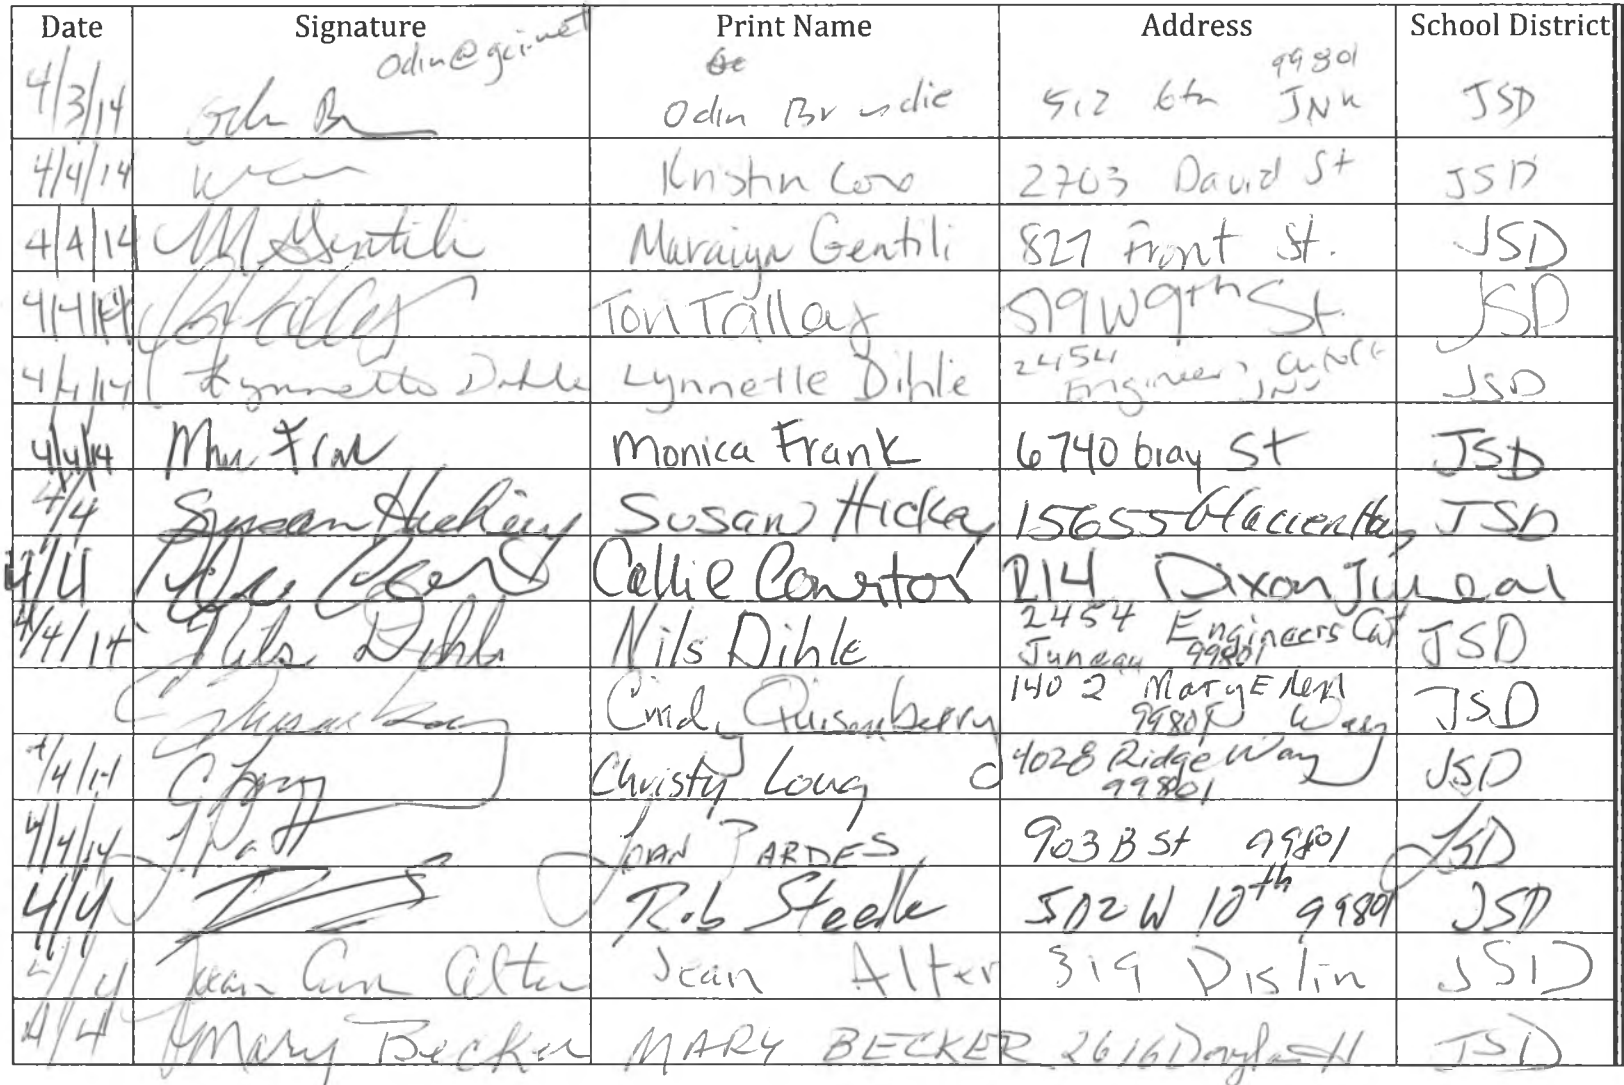 Date Signature Print Name Address School District
odin@gci.net 99801
4/3/14 Odin 512 6th JNU JSD
4/4/14 Kristin 2703 David St JSD
4/4/14 M Gentili Maraiyn Gentili 827 Front St. JSD
4/4/14 Ton Talley 519 W 9th St. JSD
4/4/14 Lynnette Dihle Lynnette Dihle 2454 Engineers Cutoff JNU JSD
4/4/14 Monica Frank 6740 Gray St JSD
4/4 Susan Hickey Susan Hickey 15655 Glacier Hwy JSD
4/4 Callie 214 Dixon Juneau
4/4/14 Nils Dihle Nils Dihle 2454 Engineers Cut JSD
Juneau 99801
Cindy Quisenberry 1402 Mary Ellen JSD
99801 Way
4/4/14 C Long Christy Long 4028 Ridge Way JSD
99801
4/4/14 Joan PARDES 903 B St 99801 JSD
4/4 Rob Steedle 502 W 10th 99801 JSD
4/4 Jean Ann Alter Jean Alter 319 Distin JSD
4/4 Mary Becker MARY BECKER 2616 Douglas H JSD